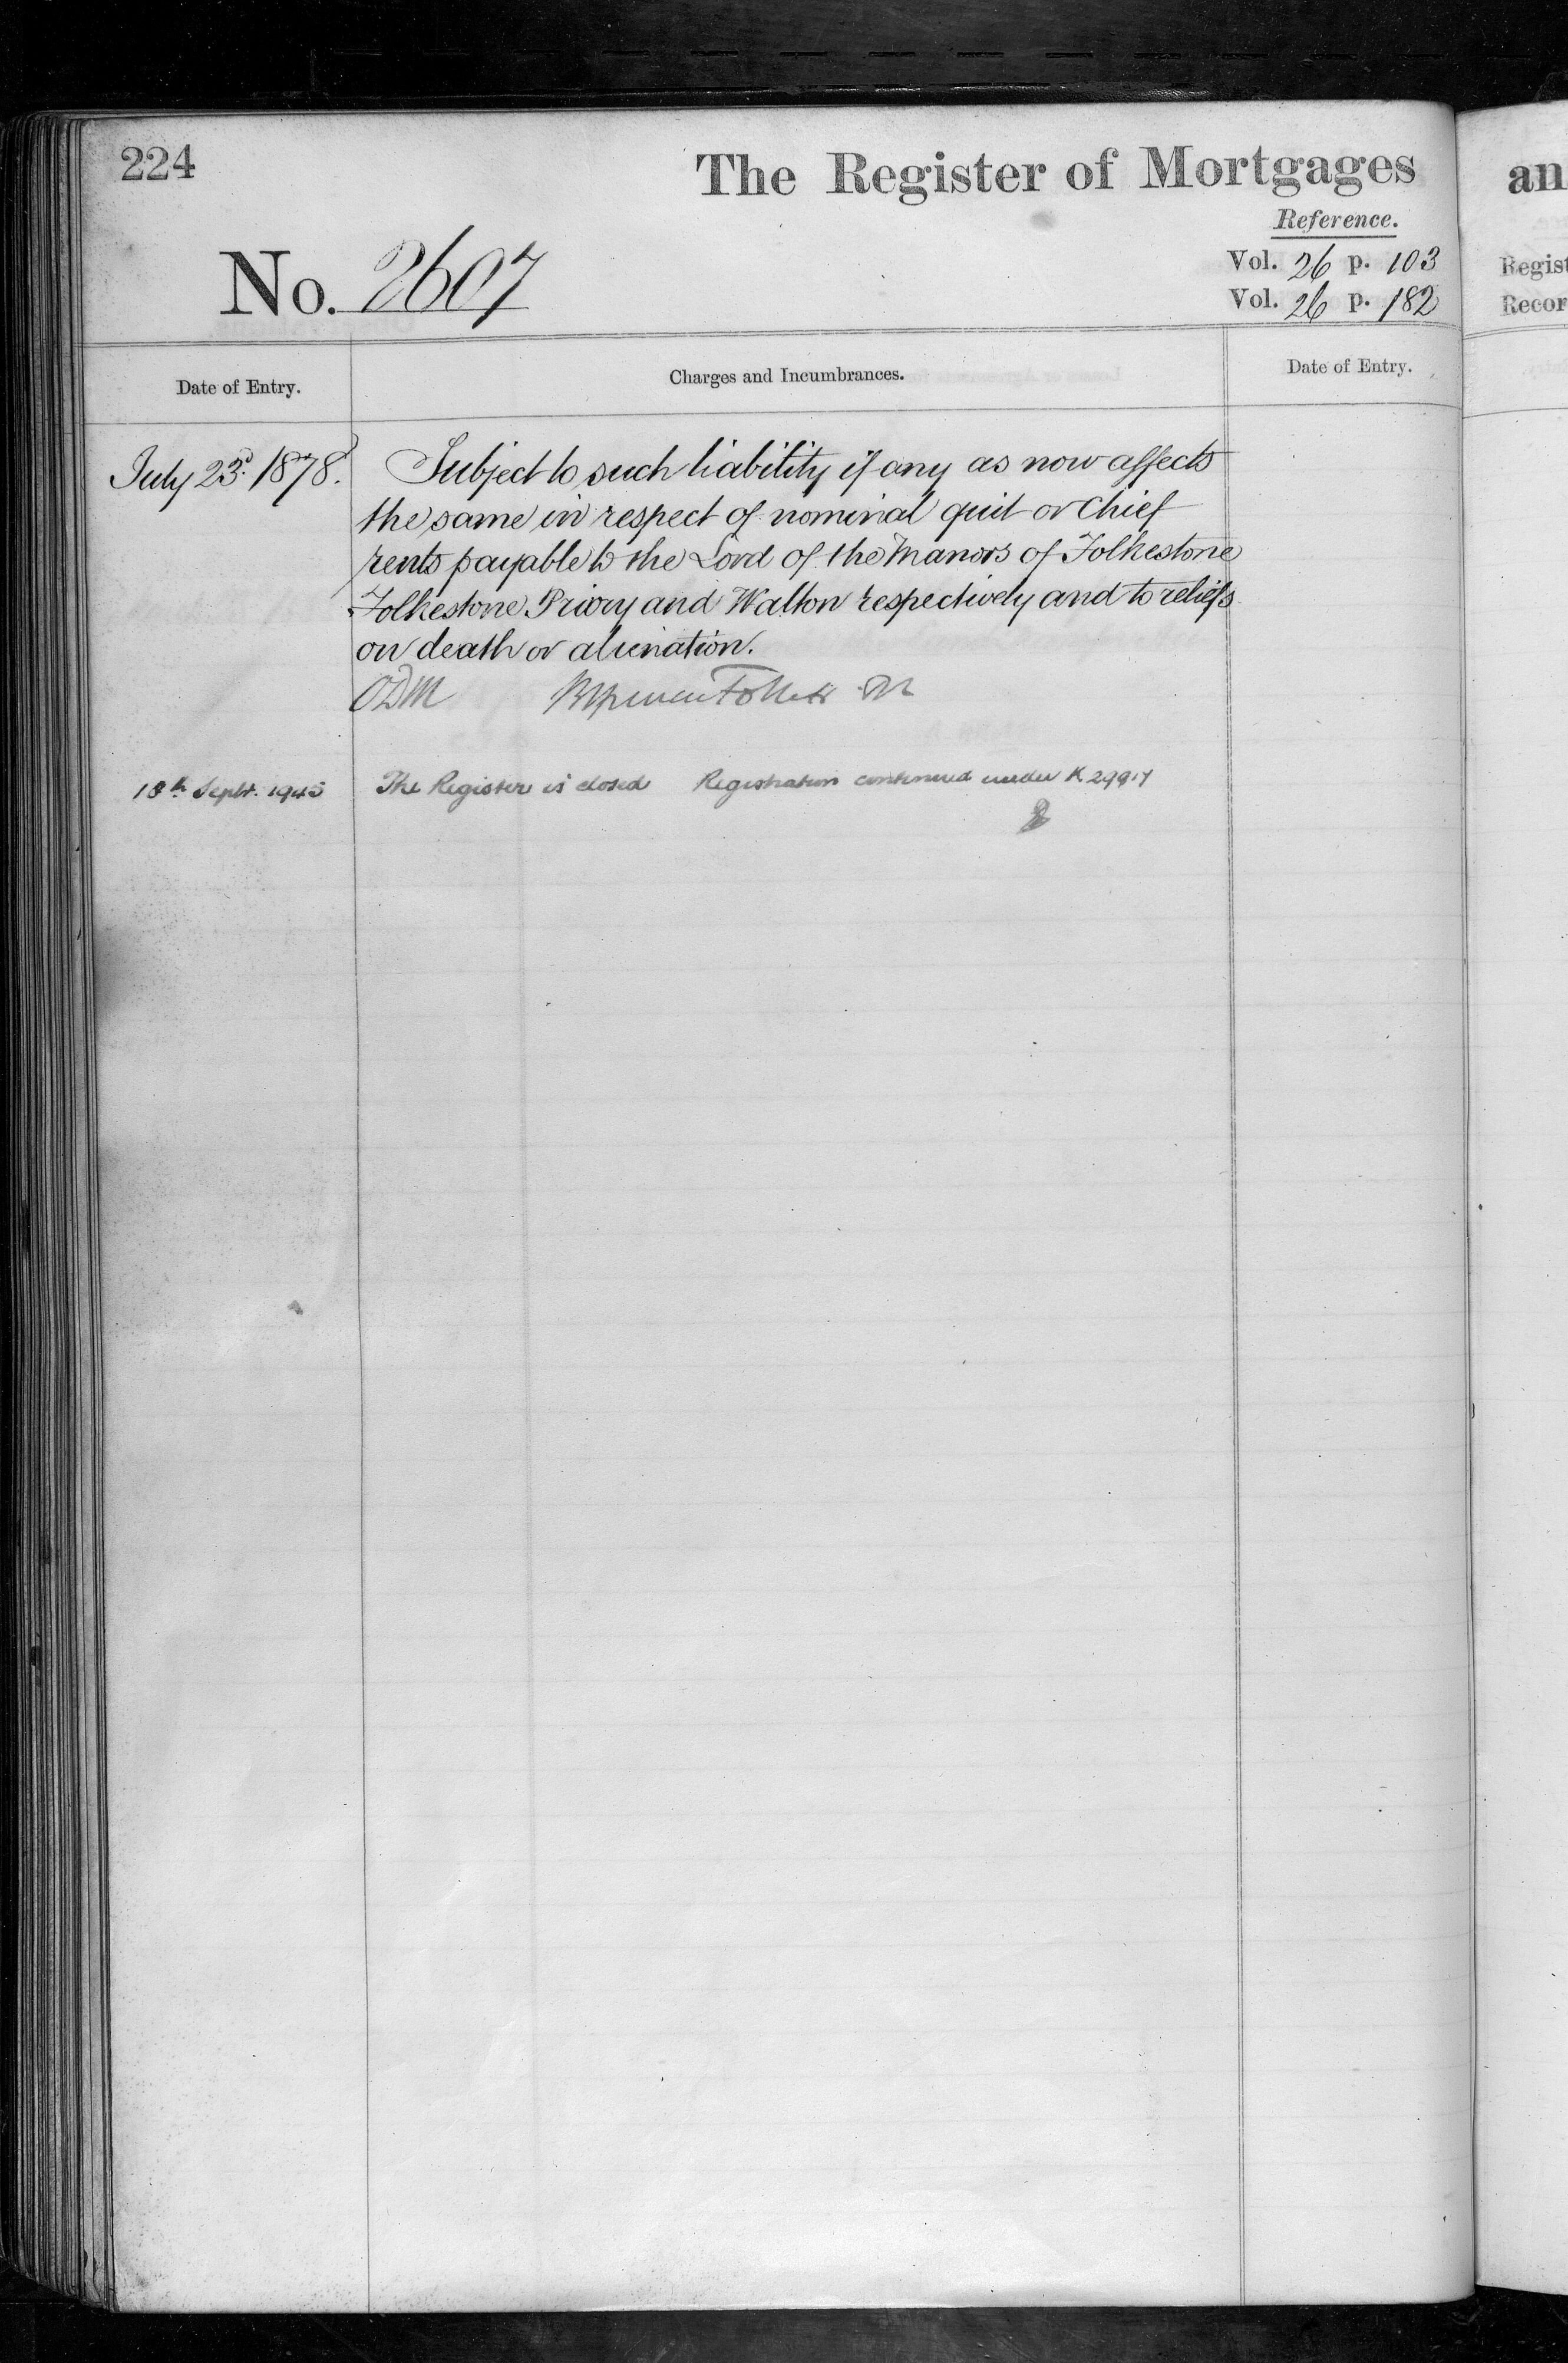 224
The Register of Mortgages
Reference.
No. 2607
Vol. 26 p. 103
Vol. 26 p. 182
Date of Entry.
Charges and Incumbrances.
Date of Entry.
July 23d. 1878.
Subject to such liability if any as now affects
the same in respect of nominal quit or Chief
rents payable to the Lord of the Manors of Folkestone
Folkestone Priory and Walton respectively and to reliefs
on death or alienation.
ODM
18th Septr. 1945
The Register is closed Registration continued under K 29917
an
Regist
Recor